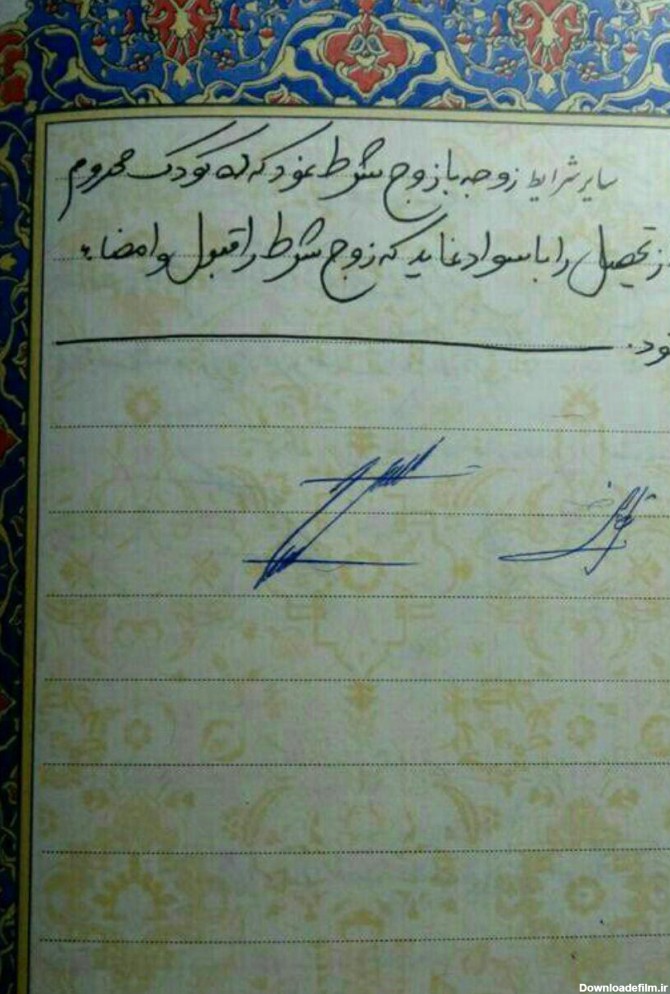 سایر شرایط زوجه با زوج شرط نمود که ده کودک محروم
ز تحصیل را با سواد نماید که زوج شرط را قبول و امضاء
ود.
Downloadefilm.ir